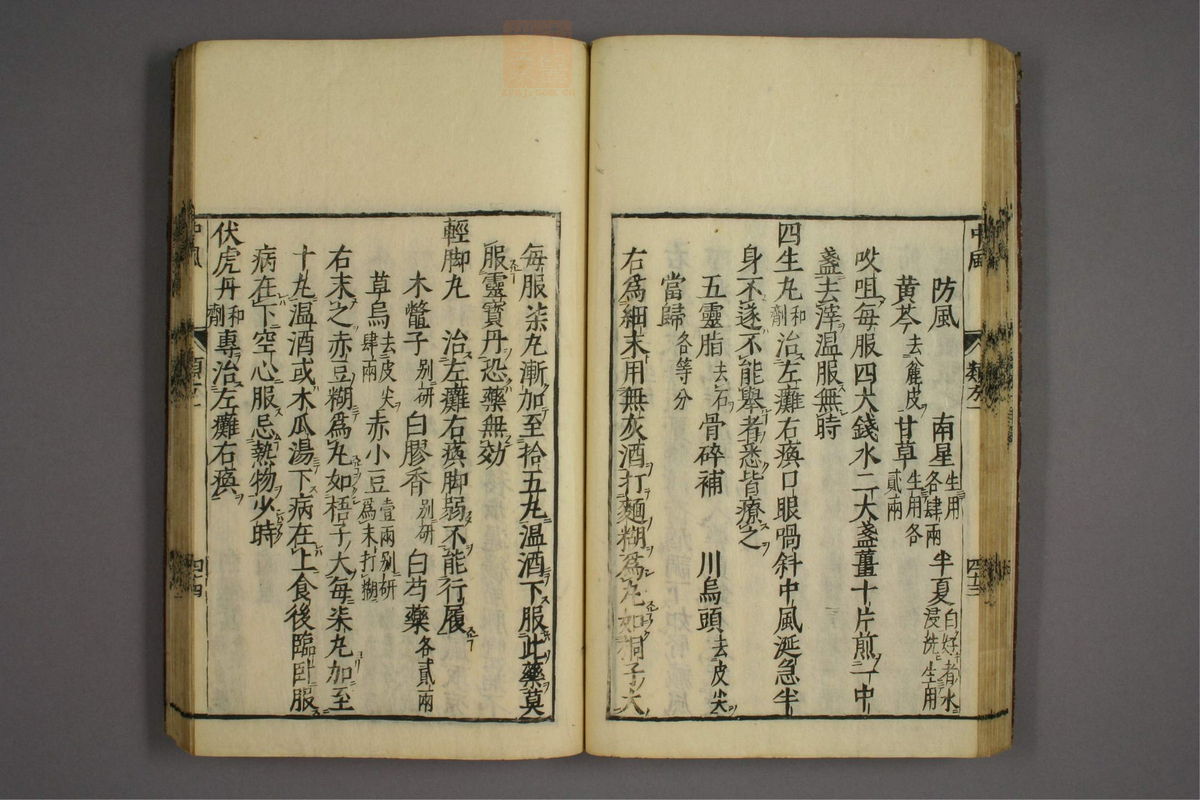 中風
類方
四十三
防風 南星生用各肆兩 半夏白好者水浸洗生用
黄芩去麄皮 甘草生用各貳兩
㕮咀每服四大錢水二大盞薑十片煎一中
盞去滓温服無時
四生丸和劑治左癱右瘓口眼喎斜中風涎急半
身不遂不能舉者悉皆療之
五靈脂去石 骨碎補 川烏頭去皮尖
當歸各等分
右爲細末用無灰酒打麵糊爲丸如桐子大
每服柒丸漸加至拾五丸温酒下服此藥莫
服靈寶丹恐藥無効
輕脚丸 治左癱右瘓脚弱不能行履
木鼈子别研 白膠香别研 白芍藥各貳兩
草烏去皮尖肆兩 赤小豆壹兩别研爲末打糊
右末之赤豆糊爲丸如梧子大每柒丸加至
十丸温酒或木瓜湯下病在上食後臨卧服
病在下空心服忌熱物少時
伏虎丹和劑專治左癱右瘓
中風
類方
四十四